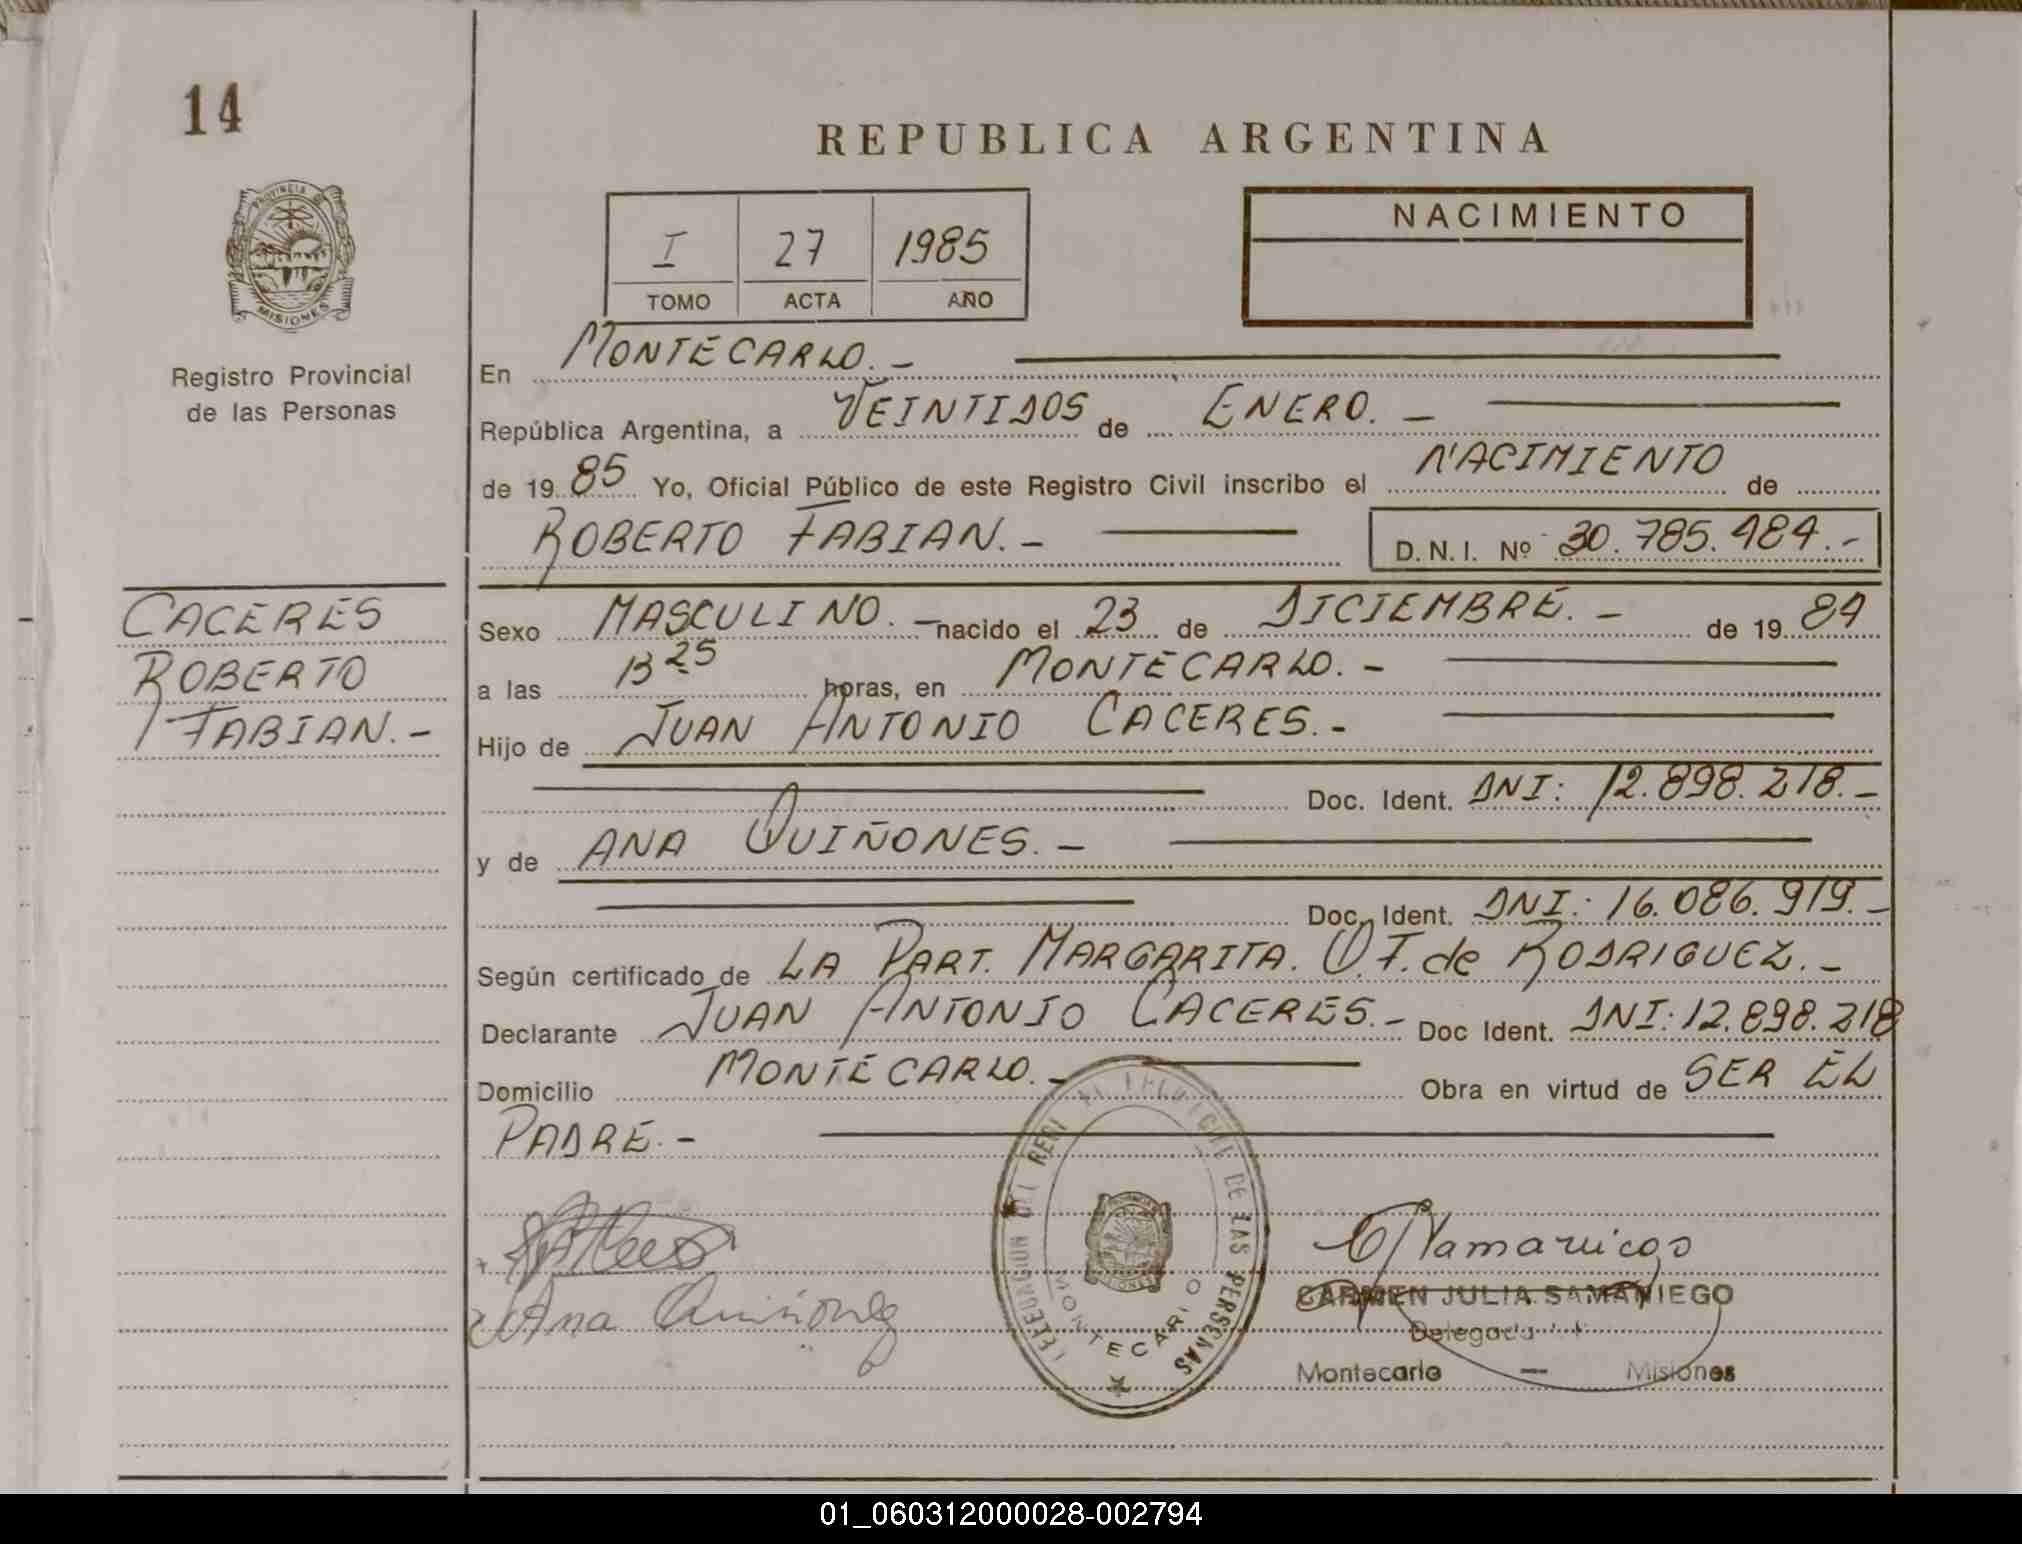 14
REPUBLICA ARGENTINA
PROVINCIA DE
MISIONES
Registro Provincial
de las Personas
I 27 1985
TOMO ACTA AÑO
NACIMIENTO
En MONTECARLO.-
República Argentina, a VEINTIDOS de ENERO.-
de 1985 Yo, Oficial Público de este Registro Civil inscribo el NACIMIENTO de
ROBERTO FABIAN.- D.N.I. Nº 30.785.484.-
CACERES
ROBERTO
FABIAN.-
Sexo MASCULINO.- nacido el 23 de DICIEMBRE.- de 1984
a las 13 25 horas, en MONTECARLO.-
Hijo de JUAN ANTONIO CACERES.-
Doc. Ident. DNI: 12.898.218.-
y de ANA QUIÑONES.-
Doc. Ident. DNI: 16.086.919.-
Según certificado de LA PART. MARGARITA. O.F. de RODRIGUEZ.-
Declarante JUAN ANTONIO CACERES.- Doc Ident. DNI: 12.898.218
Domicilio MONTECARLO.- Obra en virtud de SER EL
PADRE.-
Ana Quiñonez
DE LAS PERSONAS
MONTECARLO
CARMEN JULIA SAMANIEGO
Delegada
Montecarlo — Misiones
01_060312000028-002794